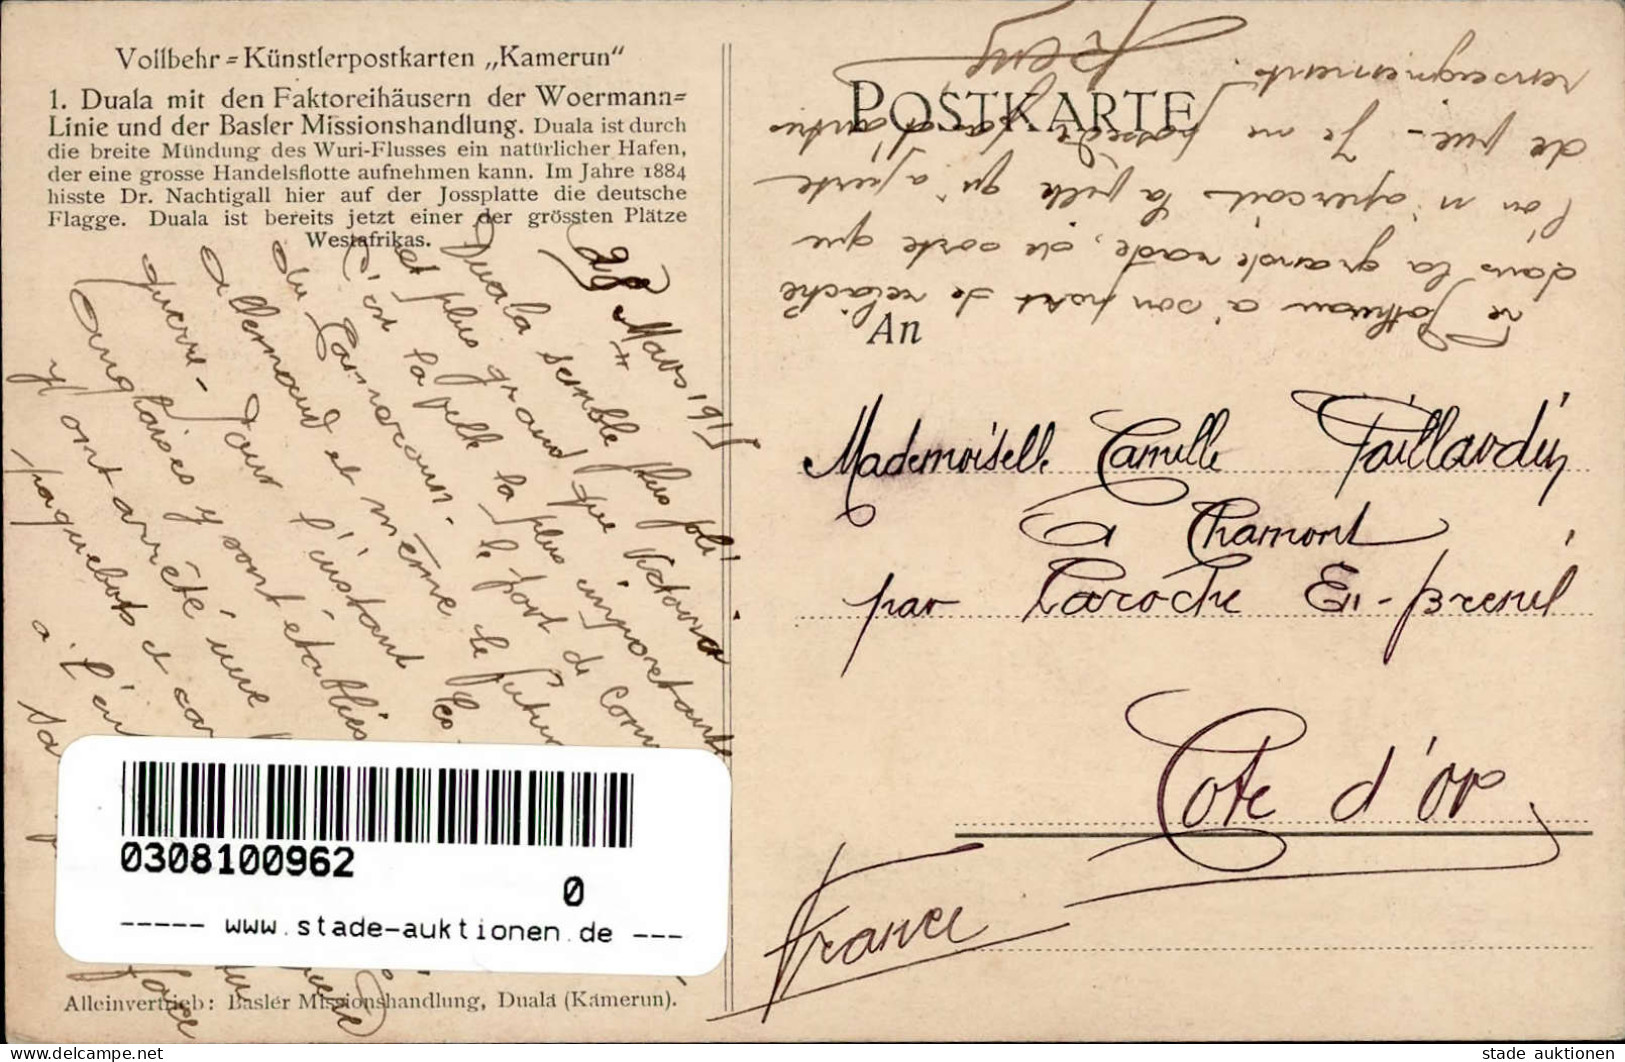 Vollbehr=Künstlerpostkarten „Kamerun“
1. Duala mit den Faktoreihäusern der Woermann=
Linie und der Basler Missionshandlung. Duala ist durch
die breite Mündung des Wuri-Flusses ein natürlicher Hafen,
der eine grosse Handelsflotte aufnehmen kann. Im Jahre 1884
hisste Dr. Nachtigall hier auf der Jossplatte die deutsche
Flagge. Duala ist bereits jetzt einer der grössten Plätze
Westafrikas.
28 Mars 1915
Duala semble plus joli
et plus grand que Victoria
C'est la ville la plus importante
du Cameroun. le port de com
allemand et même le futur
guerre - Pour l'instant les
anglaises y sont établies
y ont arrêté une
paquebots et car
à l'en
sa
POSTKARTE
le Pothuau a son port de relâche
dans la grande rade, de sorte que
l'on n'aperçoit la ville qu'à perte
de vue - Je ne possède pas d'autres
renseignements.
An
Mademoiselle Camille Paillardin
à Chamont
par Laroche En-Brenil
Cote d'or
France
0308100962
0
----- www.stade-auktionen.de ---
Alleinvertrieb: Basler Missionshandlung, Duala (Kamerun).
www.delcampe.net
stade auktionen